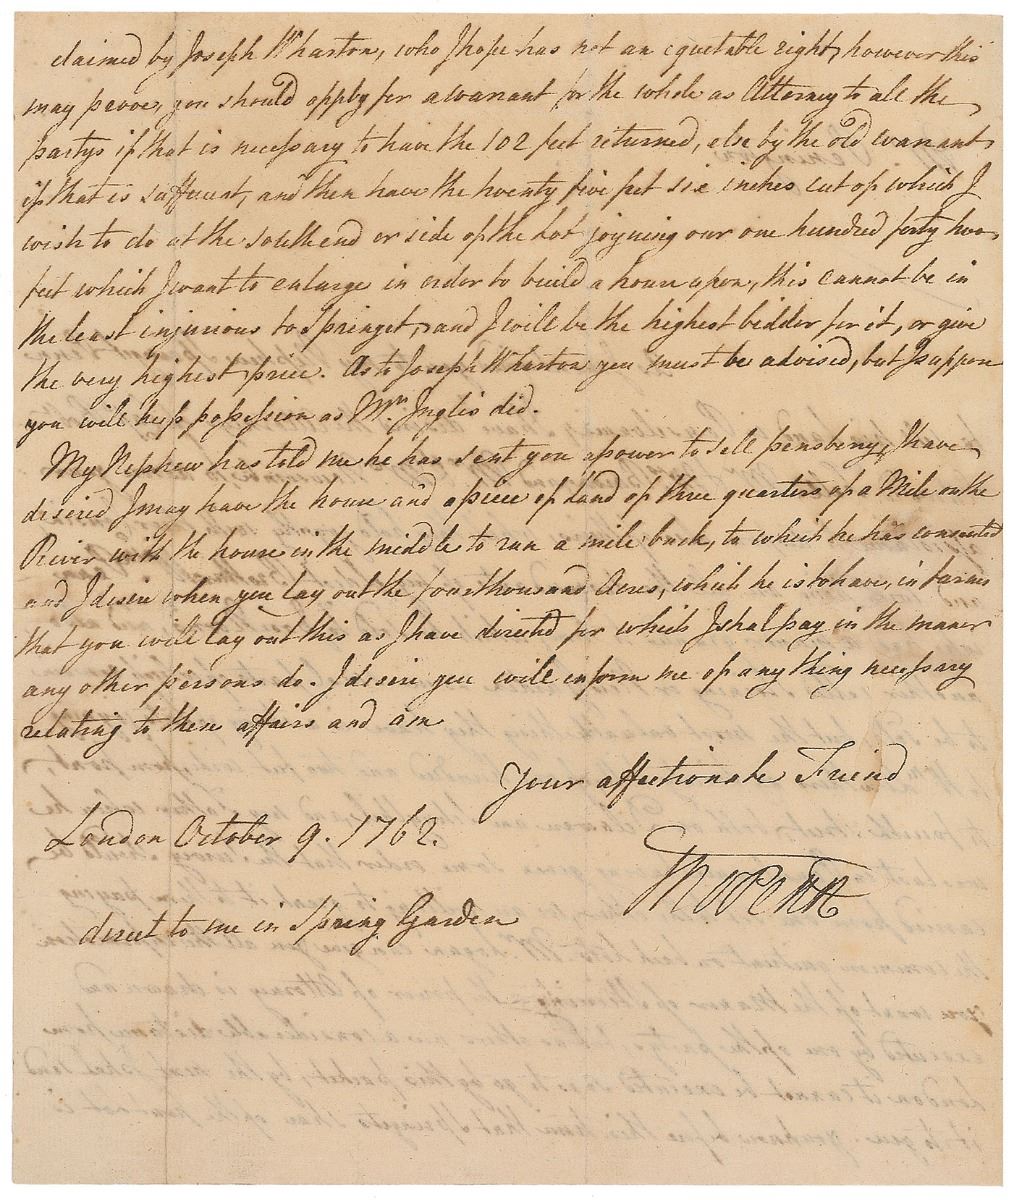 claimed by Joseph Wharton, who I hope has not an equetable right, however this
may prove, you should apply for a warant for the whole as Attorney to all the
partys if that is necessary to have the 102 feet returned, else by the old warrant,
if that is suffucient, and then have the twenty five feet six inches cut of which I
wish to do at the south end or side of the Lot joyning our one hundred forty two
feet which I want to enlarge in order to build a house upon, this cannot be in
the least injurious to Springet, and I will be the highest bidder for it, or give
the very highest price. As to Joseph Wharton you must be advised, but I suppose
you will keep possession as Mrs Inglis did.
My Nephew has told me he has sent you a power to sell pensbery, I have
desired I may have the house and a piece of Land of three quarters of a Mile on the
River with the house in the middle to run a mile back, to which he has consented
and I desire when you lay out the four thousand Acres, which he is to have, in farms
that you will lay out this as I have directed for which I shal pay in the maner
any other persons do. I desire you will inform me of any thing necessary
relating to these affairs and am
Your affectionate Friend
London October 9. 1762.
Tho Penn
direct to me in Spring Garden